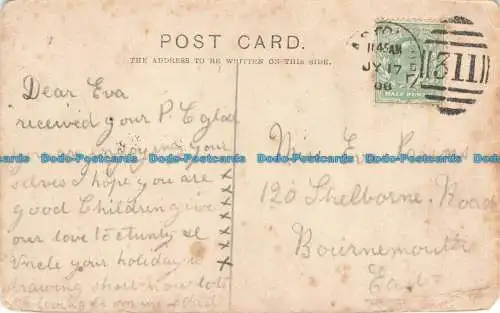 POST CARD.
THE ADDRESS TO BE WRITTEN ON THIS SIDE.
11.45AM
JY 17
08
311
HALF PENNY
Dear Eva
received your P.C glad
you are enjoying your
selves I hope you are
good Children give
our love to Aunty &
Uncle your holiday is
drawing short now lots
of love
Miss Eva
120 Shelborne Road
Bournemouth
East
Dodo-Postcards Dodo-Postcards Dodo-Postcards Dodo-Postcards Dodo-Postcards Dodo-Postcards